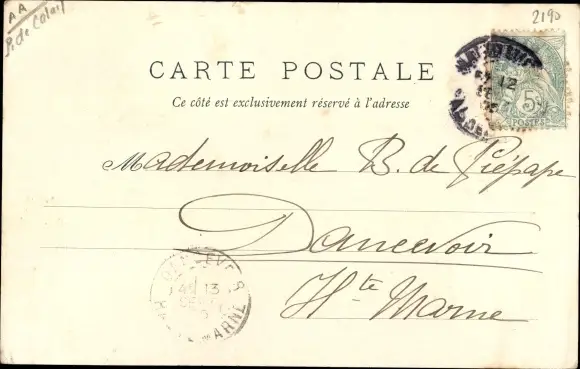 AA
P. de Calais
2190
CARTE POSTALE
Ce côté est exclusivement réservé à l'adresse
5
POSTES
Mademoiselle B. de Piépape
Dancevoir
Hte Marne
13
MARNE